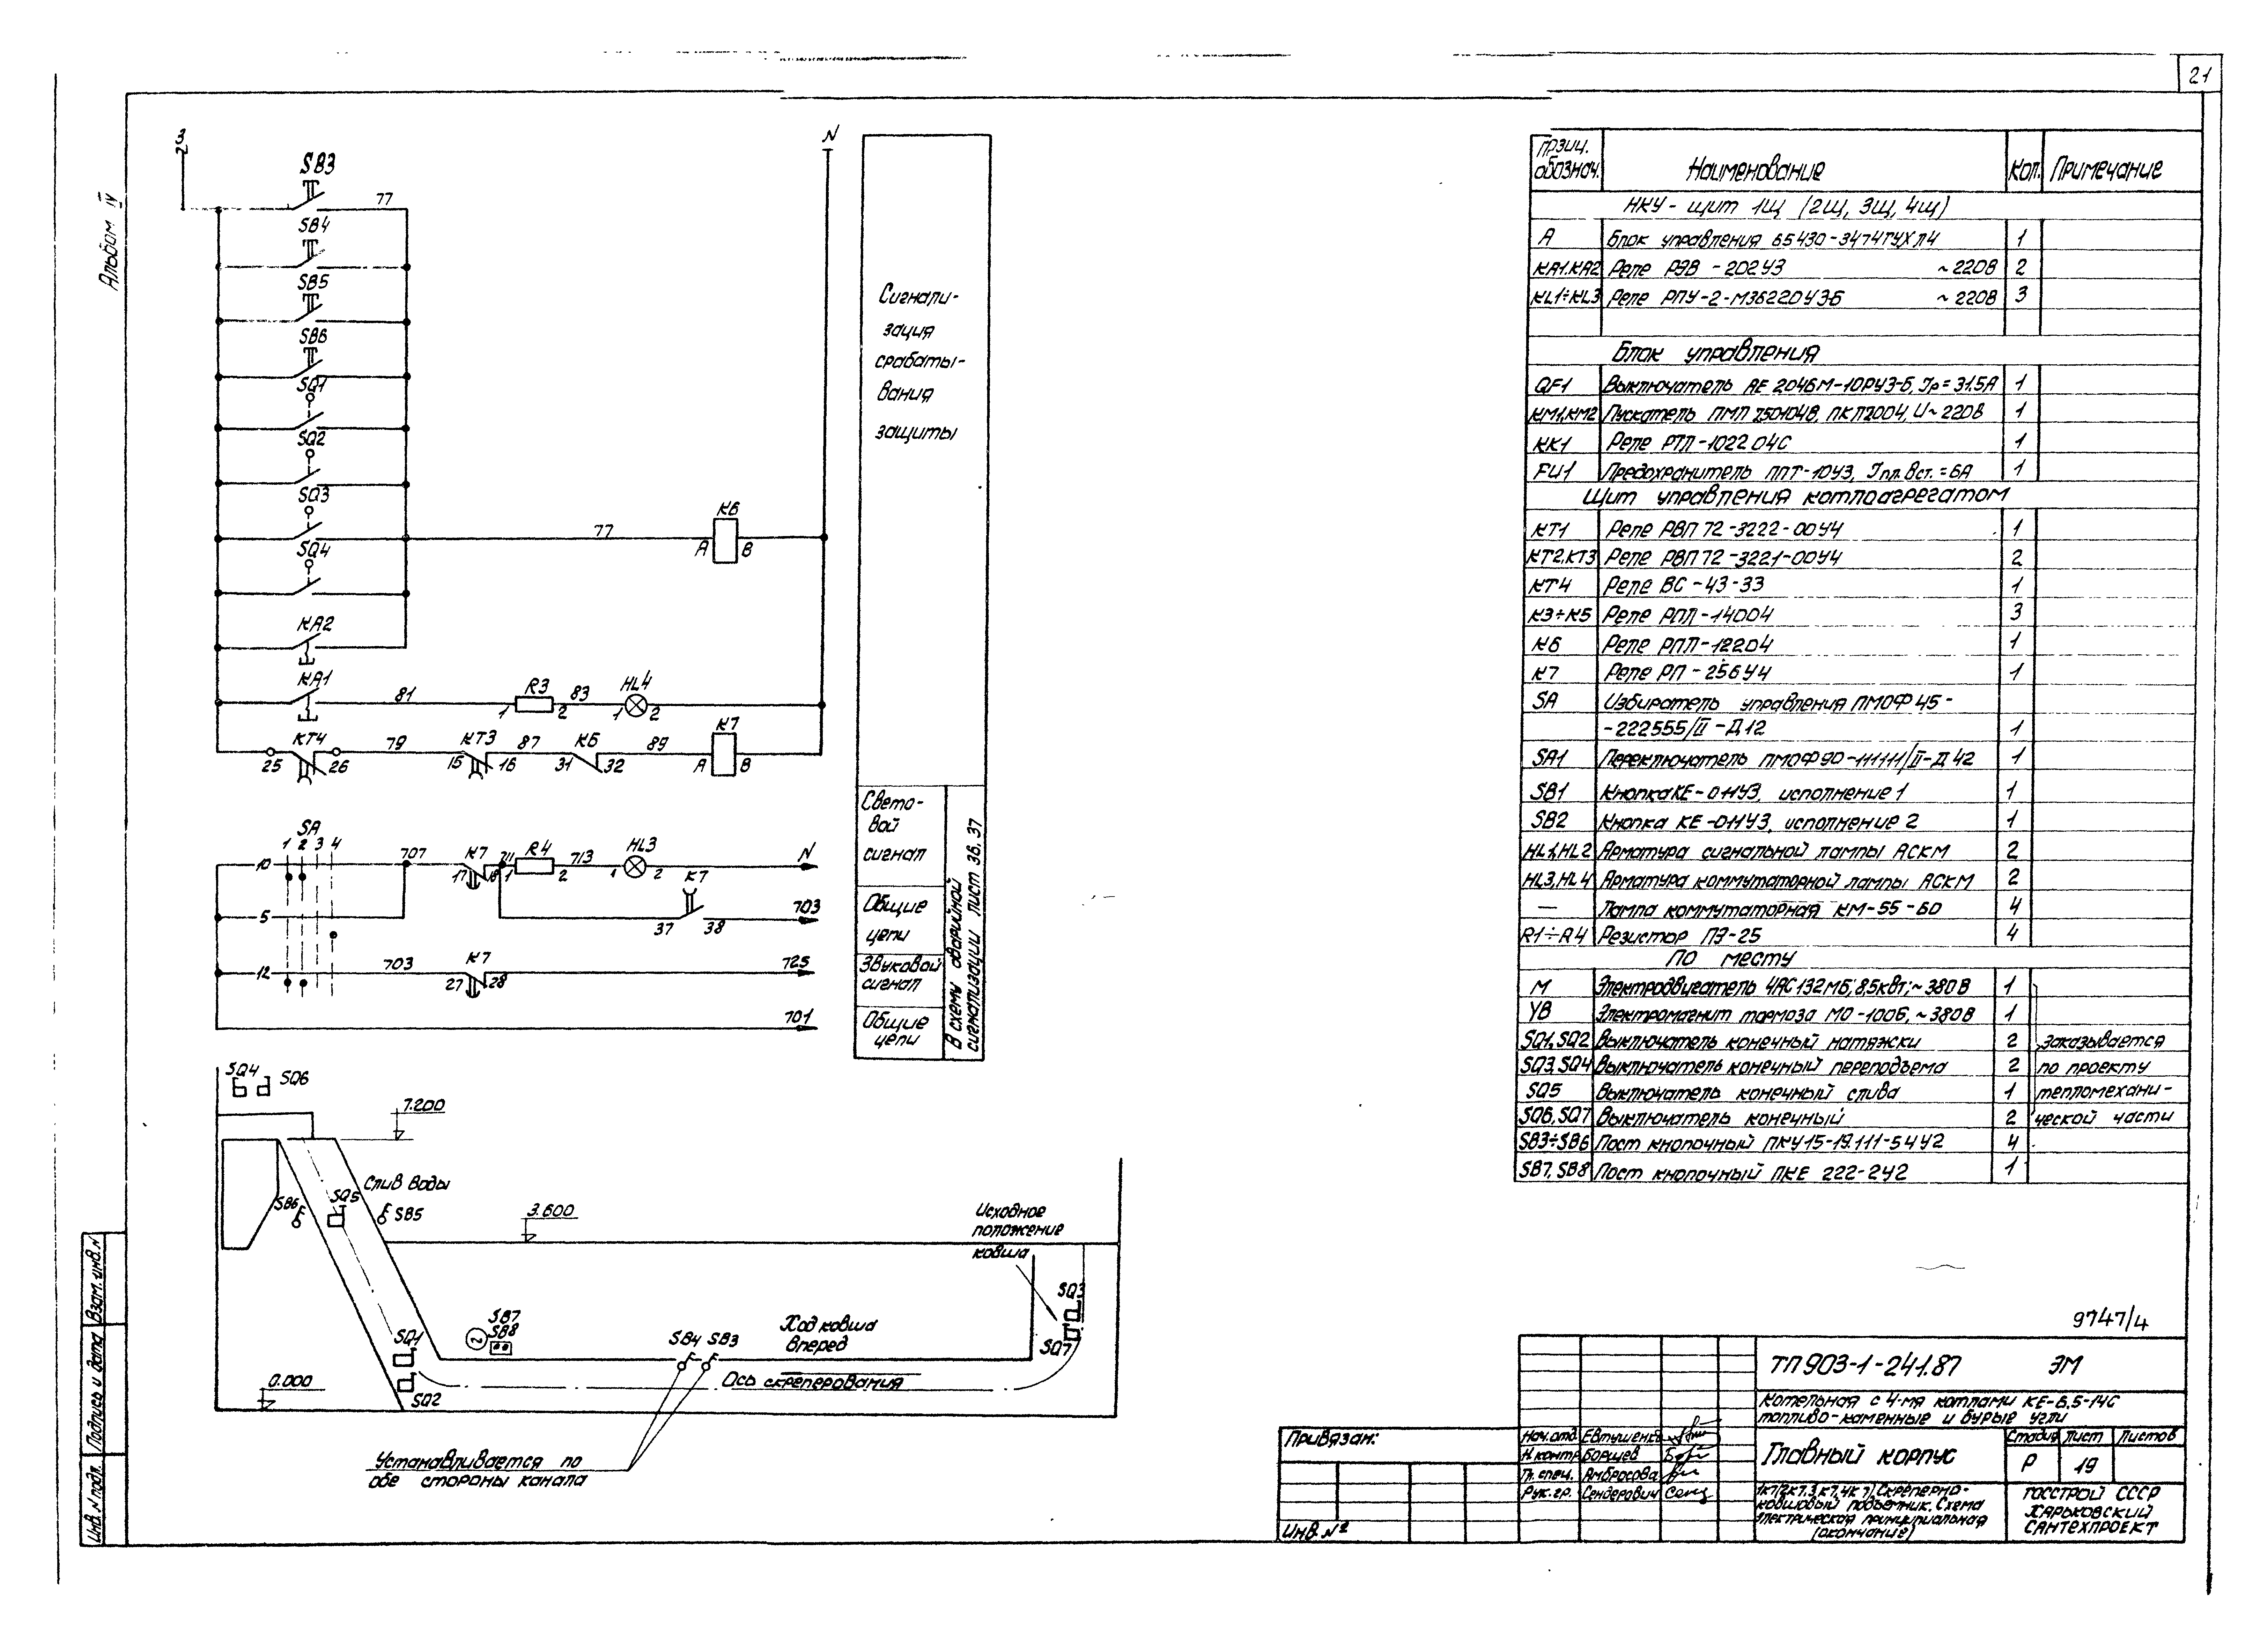 21
Альбом IV
3
N
SB3
77
SB4
SB5
SB6
SQ1
SQ2
SQ3
77
К6
А В
SQ4
КА2
КА1 81 R3 83 HL4
1 2 1 2
КТ4 79 КТ3 87 К6 89 К7
25 26 15 16 31 32 А В
Сигнали-
зация
срабаты-
вания
защиты
SA
1 2 3 4
10 707 К7 711 R4 713 HL3 N
17 18 1 2 1 2
К7
5 37 38 703
12 703 К7 725
27 28
701
Свето-
вой
сигнал
Общие
цепи
Звуковой
сигнал
Общие
цепи
В схему аварийной
сигнализации лист 36,37
SQ4 SQ6
7.200
Слив воды
SB6 SQ5 SB5
3.600
Исходное
положение
ковша
SQ3
SQ7
SB7
SB8
SQ1
SQ2
SB4 SB3
Ход ковша
вперед
Ось скреперования
0.000
Устанавливается по
обе стороны канала
Позиц.
обознач. Наименование Кол. Примечание
НКУ - щит 1Щ (2Щ, 3Щ, 4Щ)
А Блок управления Б5430-3474ГУХЛ4 1
КА1.КА2 Реле РЭВ -202У3 ~220В 2
KL1÷KL3 Реле РПУ-2-М36220У3Б ~220В 3
Блок управления
QF1 Выключатель АЕ 2046М-10РУ3-Б, Jр=31.5А 1
КМ1,КМ2 Пускатель ПМЛ 250104В, ПКЛ2004, U~220В 1
КК1 Реле РТЛ-1022 04С 1
FU1 Предохранитель ППТ-10У3, Jпл.вст.=6А 1
Щит управления котлоагрегатом
КТ1 Реле РВП 72-3222-00У4 1
КТ2,КТ3 Реле РВП 72-3221-00У4 2
КТ4 Реле ВС-43-33 1
К3÷К5 Реле РПЛ-14004 3
К6 Реле РПЛ-12204 1
К7 Реле РП-256У4 1
SA Избиратель управления ПМОФ 45-
-222555/II-Д12 1
SA1 Переключатель ПМОФ90-111111/II-Д42 1
SB1 Кнопка КЕ-011У3, исполнение 1 1
SB2 Кнопка КЕ-011У3, исполнение 2 1
HL1,HL2 Арматура сигнальной лампы АСКМ 2
HL3,HL4 Арматура коммутаторной лампы АСКМ 2
— Лампа коммутаторная КМ-55-60 4
R1÷R4 Резистор ПЭ-25 4
По месту
М Электродвигатель 4АС132М6; 8,5квт; ~380В 1
УВ Электромагнит тормоза МО-100Б, ~380В 1
SQ1,SQ2 Выключатель конечный натяжки 2 заказывается
SQ3,SQ4 Выключатель конечный переподъема 2 по проекту
SQ5 Выключатель конечный слива 1 тепломехани-
SQ6,SQ7 Выключатель конечный 2 ческой части
SB3÷SB6 Пост кнопочный ПКУ15-19.111-54У2 4
SB7,SB8 Пост кнопочный ПКЕ 222-2У2 1
9747/4
ТП 903-1-241.87 ЭМ
Котельная с 4-мя котлами КЕ-6,5-14С
топливо-каменные и бурые угли
Главный корпус
Стадия Лист Листов
Р 19
1К7(2К7,3К7,4К7) Скреперно-
ковшовый подъемник. Схема
электрическая принципиальная
(окончание)
ГОССТРОЙ СССР
ХАРЬКОВСКИЙ
САНТЕХПРОЕКТ
Нач.отд. Евтушенко
Н.контр. Борщев
Гл.спец. Амбросова
Рук.гр. Сендерович
Привязан:
Инв.№
Взам. инв. N
Подпись и дата
Инв. N подл.